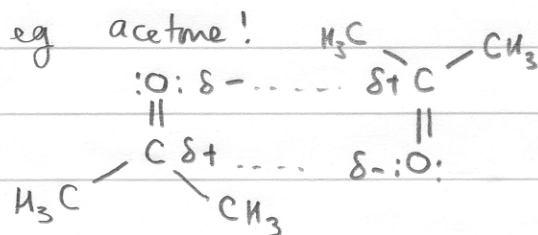 eg acetone!
H₃C CH₃
:O: δ- ...... δ+ C
||
||
C δ+ .... δ- :O:
H₃C CH₃